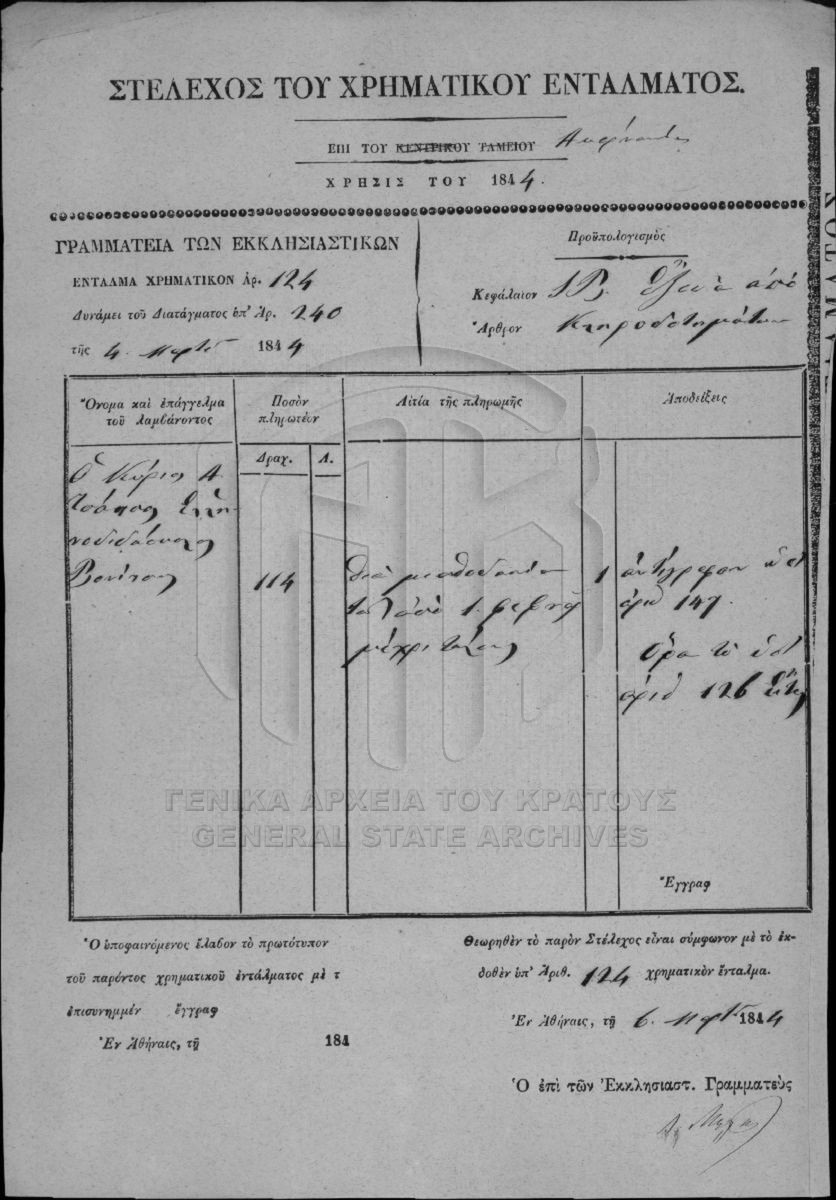 ΣΤΕΛΕΧΟΣ ΤΟΥ ΧΡΗΜΑΤΙΚΟΥ ΕΝΤΑΛΜΑΤΟΣ.
ΕΠΙ ΤΟΥ ΚΕΝΤΡΙΚΟΥ ΤΑΜΕΙΟΥ
ΧΡΗΣΙΣ ΤΟΥ 1844.
ΓΡΑΜΜΑΤΕΙΑ ΤΩΝ ΕΚΚΛΗΣΙΑΣΤΙΚΩΝ
ΕΝΤΑΛΜΑ ΧΡΗΜΑΤΙΚΟΝ Ἀρ. 124
Δυνάμει τοῦ Διατάγματος ὑπ' Ἀρ. 240
τῆς 4 Μαρτ 1844
Προϋπολογισμὸς
Κεφάλαιον ΙΒ. Ἔξοδα ἀπὸ
Ἄρθρον Κληροδοτημάτων
Ὄνομα καὶ ἐπάγγελμα
τοῦ λαμβάνοντος
Ποσὸν
πληρωτέον
Αἰτία τῆς πληρωμῆς
Ἀποδείξεις
Δραχ. Λ.
Ὁ Κύριος Α.
Ἑλλη
νοδιδάσκαλος
Βονίτσης
114
διὰ μισθοδοσίαν
του ἀπὸ 1. φεβρ
μέχρι τέλους
1 ἀντίγραφον ὑπ
ἀριθ 147.
Ὅρα τὸ ὑπ
ἀριθ 126
Ἔγγραφ
ΓΕΝΙΚΑ ΑΡΧΕΙΑ ΤΟΥ ΚΡΑΤΟΥΣ
GENERAL STATE ARCHIVES
Ὁ ὑποφαινόμενος ἔλαβον τὸ πρωτότυπον
τοῦ παρόντος χρηματικοῦ ἐντάλματος μὲ τ
ἐπισυνημμέν ἔγγραφ
Ἐν Ἀθήναις, τῇ 184
Θεωρηθὲν τὸ παρὸν Στέλεχος εἶναι σύμφωνον μὲ τὸ ἐκ-
δοθὲν ὑπ' Ἀριθ. 124 χρηματικὸν ἔνταλμα.
Ἐν Ἀθήναις, τῇ 6. Μαρτ 1844
Ὁ ἐπὶ τῶν Ἐκκλησιαστ. Γραμματεὺς